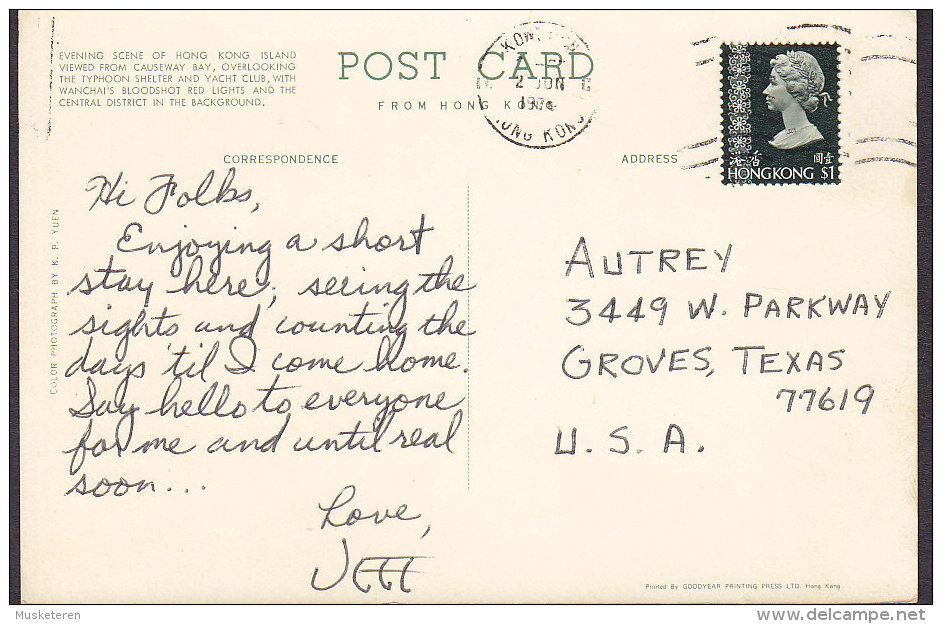 EVENING SCENE OF HONG KONG ISLAND
VIEWED FROM CAUSEWAY BAY, OVERLOOKING
THE TYPHOON SHELTER AND YACHT CLUB, WITH
WANCHAI'S BLOODSHOT RED LIGHTS AND THE
CENTRAL DISTRICT IN THE BACKGROUND.
POST CARD
FROM HONG KONG
2 JUN
HONG KONG
香港
壹圓
HONG KONG $1
CORRESPONDENCE
ADDRESS
Hi Folks,
Enjoying a short
stay here, seeing the
sights and counting the
days 'til I come home.
Say hello to everyone
for me and until real
soon...
Love,
Jeff
AUTREY
3449 W. PARKWAY
GROVES, TEXAS
77619
U. S. A.
COLOR PHOTOGRAPH BY K. P. YUEN
Printed By GOODYEAR PRINTING PRESS LTD. Hong Kong
Musketeren
delcampe.net